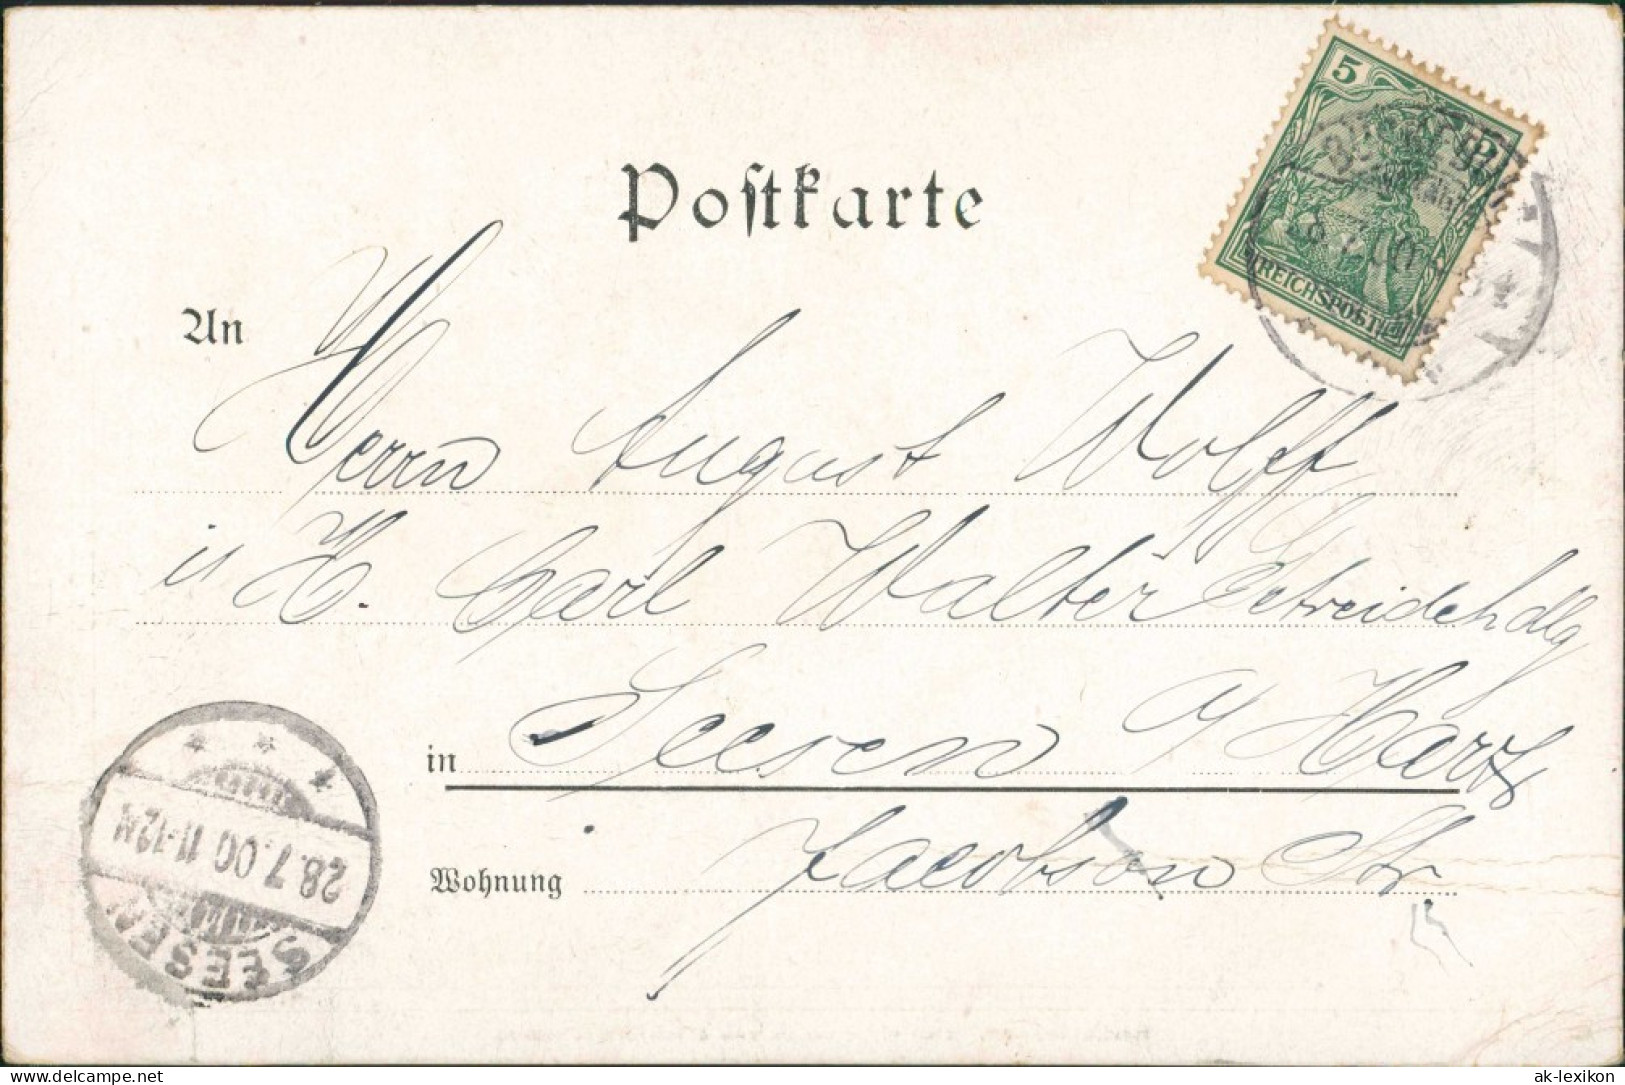 Postkarte
5
REICHSPOST
An
Herrn August Wolff
H. Carl Walter Getreidehdlg
in Seesen a/ Harz
Wohnung Jacobson Str
SEESEN
28.7.00 11-12 N
MADE IN GERMANY BY DELCAMPE
ak-lexikon